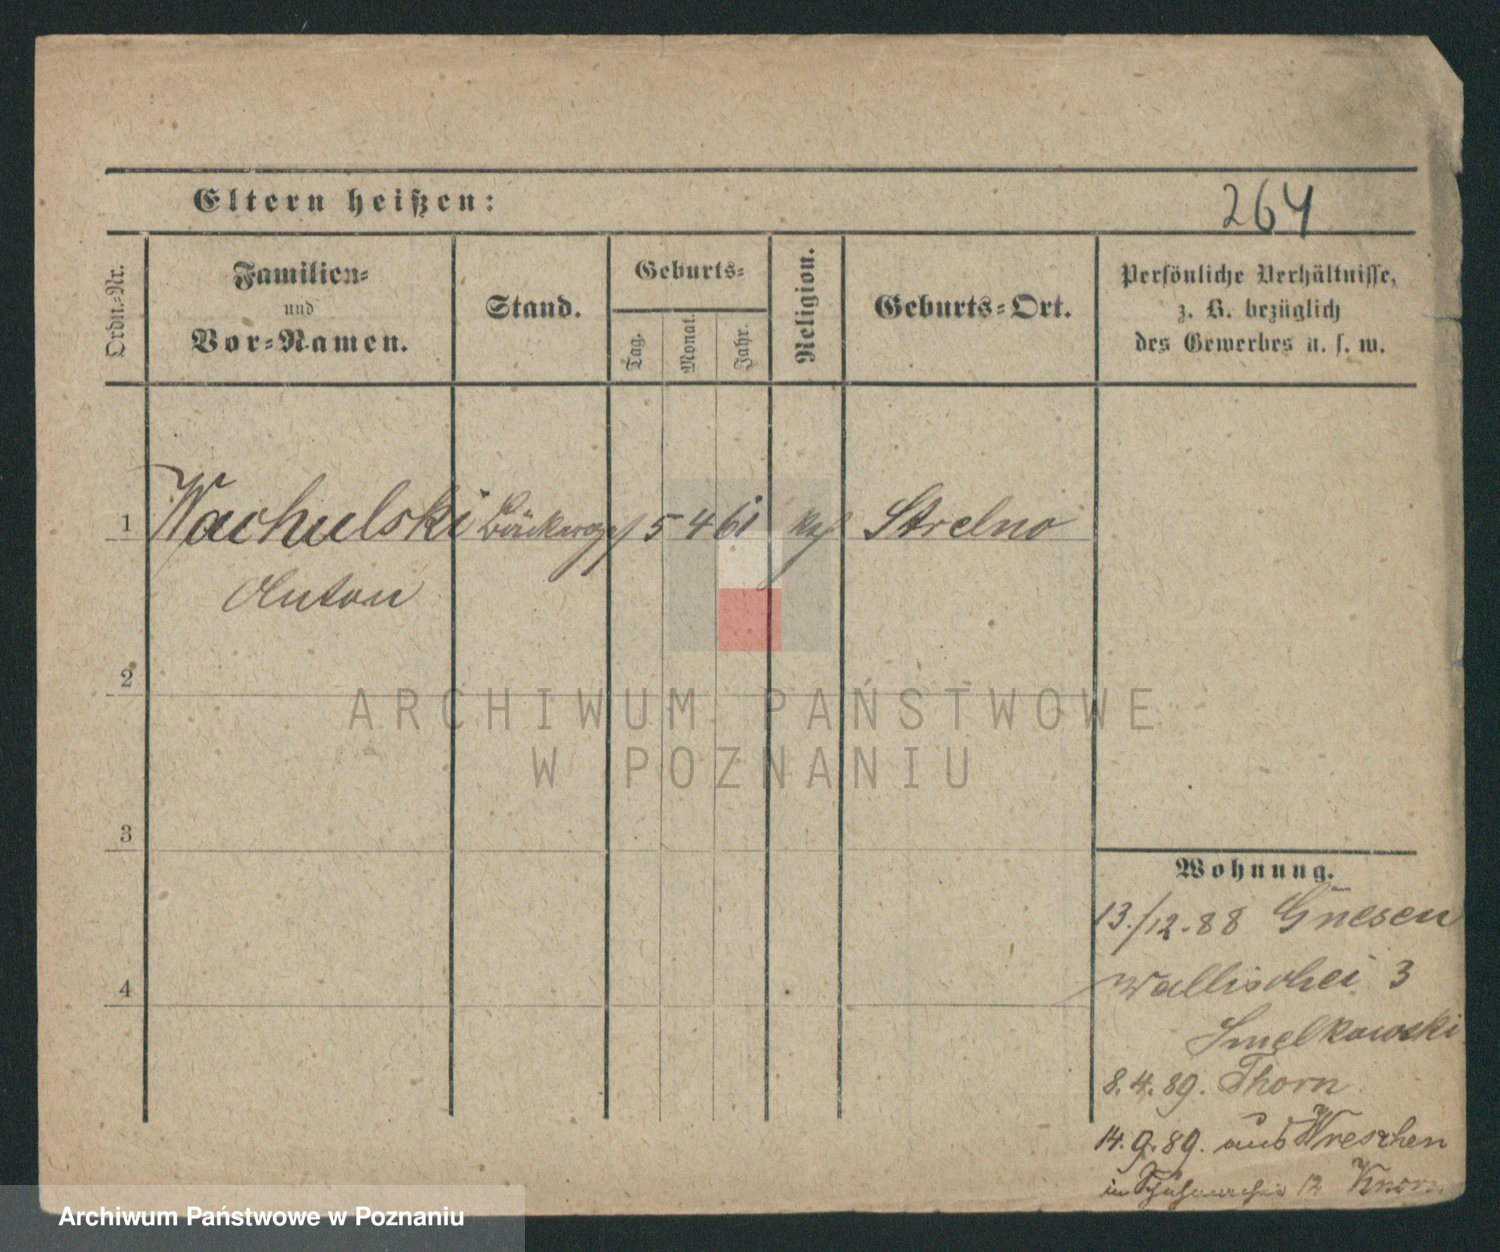 Eltern heißen:
264
Ordn.-Nr.
Familien-
und
Vor-Namen.
Stand.
Geburts-
Tag.
Monat.
Jahr.
Religion.
Geburts-Ort.
Persönliche Verhältnisse,
z. B. bezüglich
des Gewerbes u. s. w.
1 Wachulski Bäckerges 5 4 61 kt Strelno
Anton
2
3
4
ARCHIWUM PAŃSTWOWE
W POZNANIU
Wohnung.
13./12.88 Gnesen
Wallischei 3
Smelkowski
8.4.89. Thorn
14.9.89. aus Wreschen
in Schuhmacher 12
Archiwum Państwowe w Poznaniu